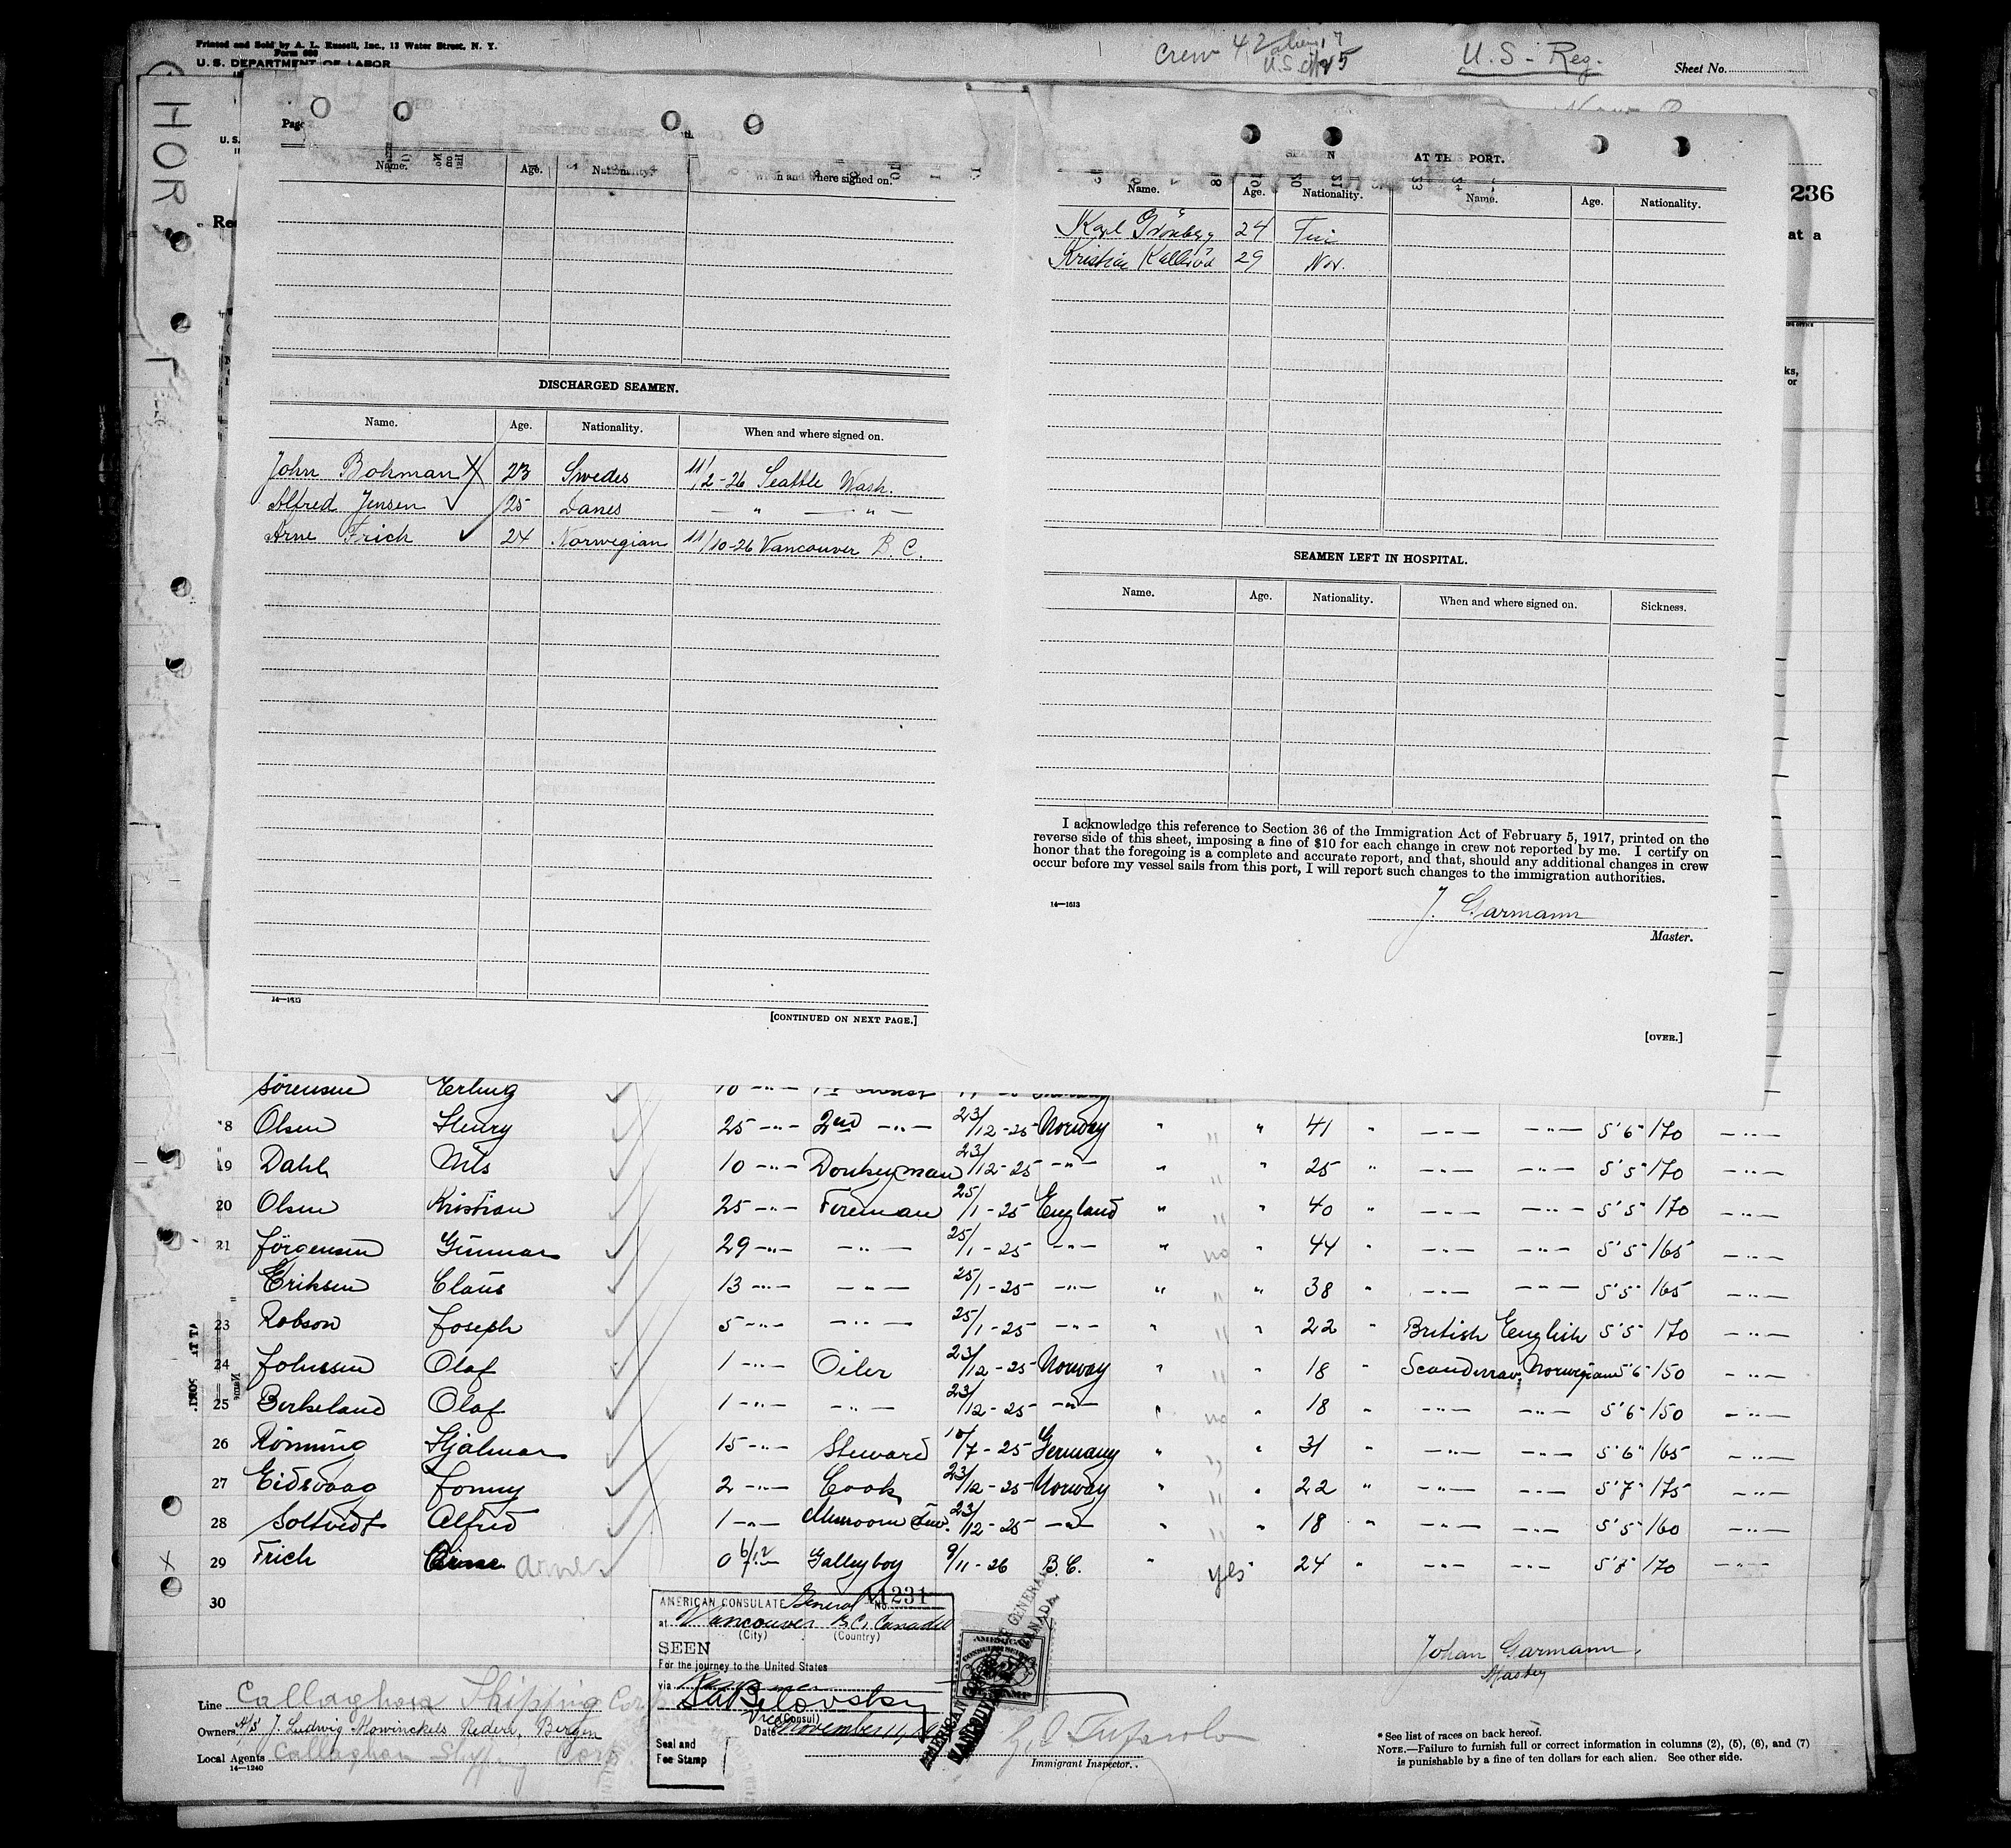 Printed and Sold by A. L. Russell, Inc., 13 Water Street, N. Y.
Form 680
U. S. DEPARTMENT OF LABOR
Crew 42 alien 17
U.S. 25
U.S - Reg.
Sheet No.
236
at a
Name. Age. Nationality. When and where signed on.
DISCHARGED SEAMEN.
Name. Age. Nationality. When and where signed on.
John Bohman 23 Swedes 11/2-26 Seattle Wash.
Alfred Jensen 25 Danes — " — — " —
Arne Frich 24 Norwegian 11/10-26 Vancouver B. C.
14—1613
[CONTINUED ON NEXT PAGE.]
AT THE PORT.
Name. Age. Nationality. Name. Age. Nationality.
Karl Grönberg 24 Fin
Kristian 29 Nor.
SEAMEN LEFT IN HOSPITAL.
Name. Age. Nationality. When and where signed on. Sickness.
I acknowledge this reference to Section 36 of the Immigration Act of February 5, 1917, printed on the
reverse side of this sheet, imposing a fine of $10 for each change in crew not reported by me. I certify on
honor that the foregoing is a complete and accurate report, and that, should any additional changes in crew
occur before my vessel sails from this port, I will report such changes to the immigration authorities.
14—1613
J. Garmann
Master.
[OVER.]
Sörensen Erling 10 -"-
18 Olsen Henry 25 -"- 2nd -"- 23/12-25 Norway " " " 41 " -"- -"- 5'6" 170 -"-
19 Dahl Nils 10 -"- Donkeyman 23/12-25 -"- " " " 25 " -"- -"- 5'5" 170 -"-
20 Olsen Kristian 25 -"- Fireman 25/1-25 England " " " 40 " -"- -"- 5'5" 170 -"-
21 Jörgensen Gunnar 29 -"- -"- 25/1-25 -"- " no " 44 " -"- -"- 5'5" 165 -"-
Eriksen Claus 13 -"- -"- 25/1-25 -"- " " " 38 " -"- -"- 5'5" 165 -"-
23 Robson Joseph 5 -"- -"- 25/1-25 -"- " " " 22 " British English 5'5" 170 -"-
24 Johnsen Olaf 1 -"- Oiler 23/12-25 Norway " " " 18 " Scandinav. Norwegian 5'6" 150 -"-
25 Birkeland Olaf 1 -"- -"- 23/12-25 -"- " no " 18 " -"- -"- 5'6" 150 -"-
26 Rönning Hjalmar 15 -"- Steward 10/7-25 Germany " " " 31 " -"- -"- 5'6" 165 -"-
27 Eidsvaag Jonny 2 -"- Cook 23/12-25 Norway " " " 22 " -"- -"- 5'7" 175 -"-
28 Soltvedt Alfred 1 -"- Messroom 23/12-25 -"- " " " 18 " -"- -"- 5'5" 160 -"-
29 Frich Arne 0 6/12 Galleyboy 9/11-26 B.C. " yes " 24 " -"- -"- 5'8" 170 -"-
30
AMERICAN CONSULATE General No. 11231
at Vancouver B.C. Canada
(City) (Country)
SEEN
For the journey to the United States
via
Vice Consul
Date November 11,
Seal and
Fee Stamp
Johan Garmann.
Master
Line Callaghan Shipping Corp
Owners A/S J. Ludwig Mowinckels Rederi, Bergen
Local Agents Callaghan Shipping Corp
14—1240
Immigrant Inspector.
* See list of races on back hereof.
NOTE.—Failure to furnish full or correct information in columns (2), (5), (6), and (7)
is punishable by a fine of ten dollars for each alien. See other side.